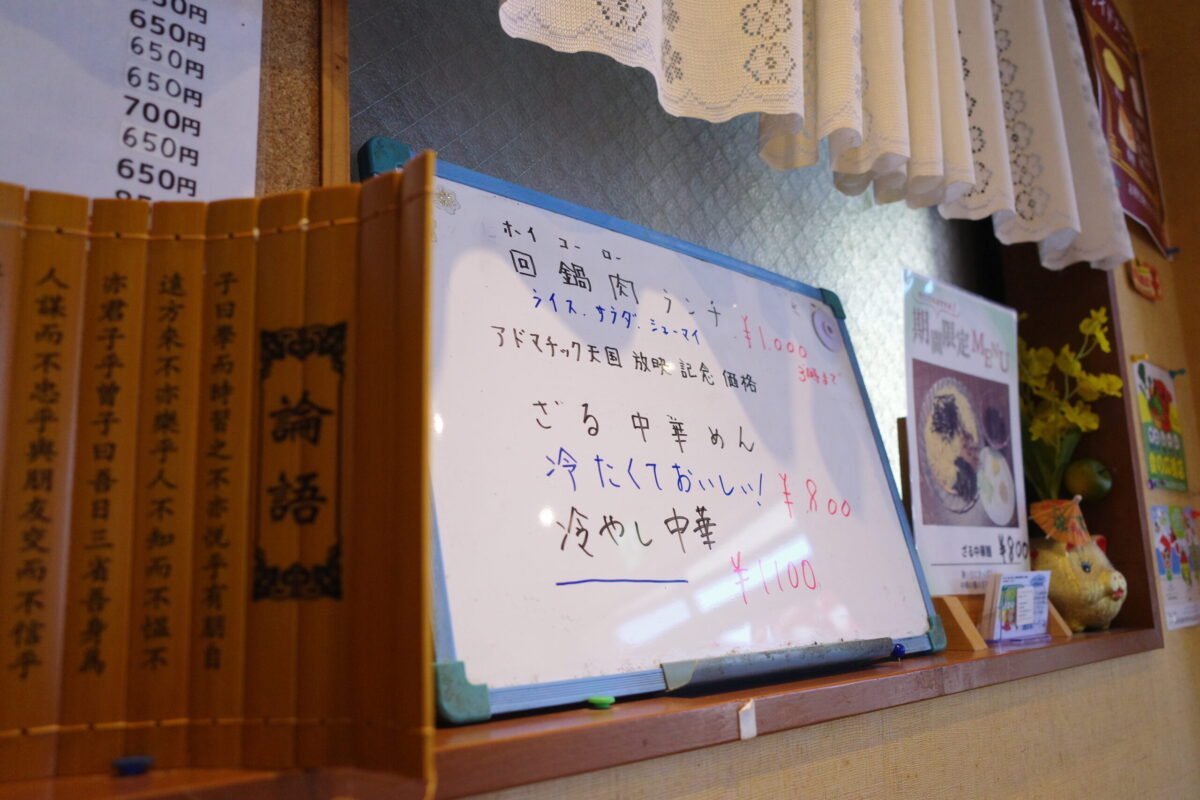 650円
650円
650円
700円
650円
650円
論語
子曰學而時習之不亦悦乎有朋自
遠方來不亦樂乎人不知而不愠不
亦君子乎曾子曰吾日三省吾身爲
人謀而不忠乎與朋友交而不信乎
ホイ コー ロー
回 鍋 肉 ランチ
ライス、サラダ、シューマイ
¥1,000
3時まで
アドマチック天国 放映 記念 価格
ざる 中華 めん
冷たくておいしい!
¥800
冷やし中華
¥1100
期間限定MENU
ざる中華麺 ¥800